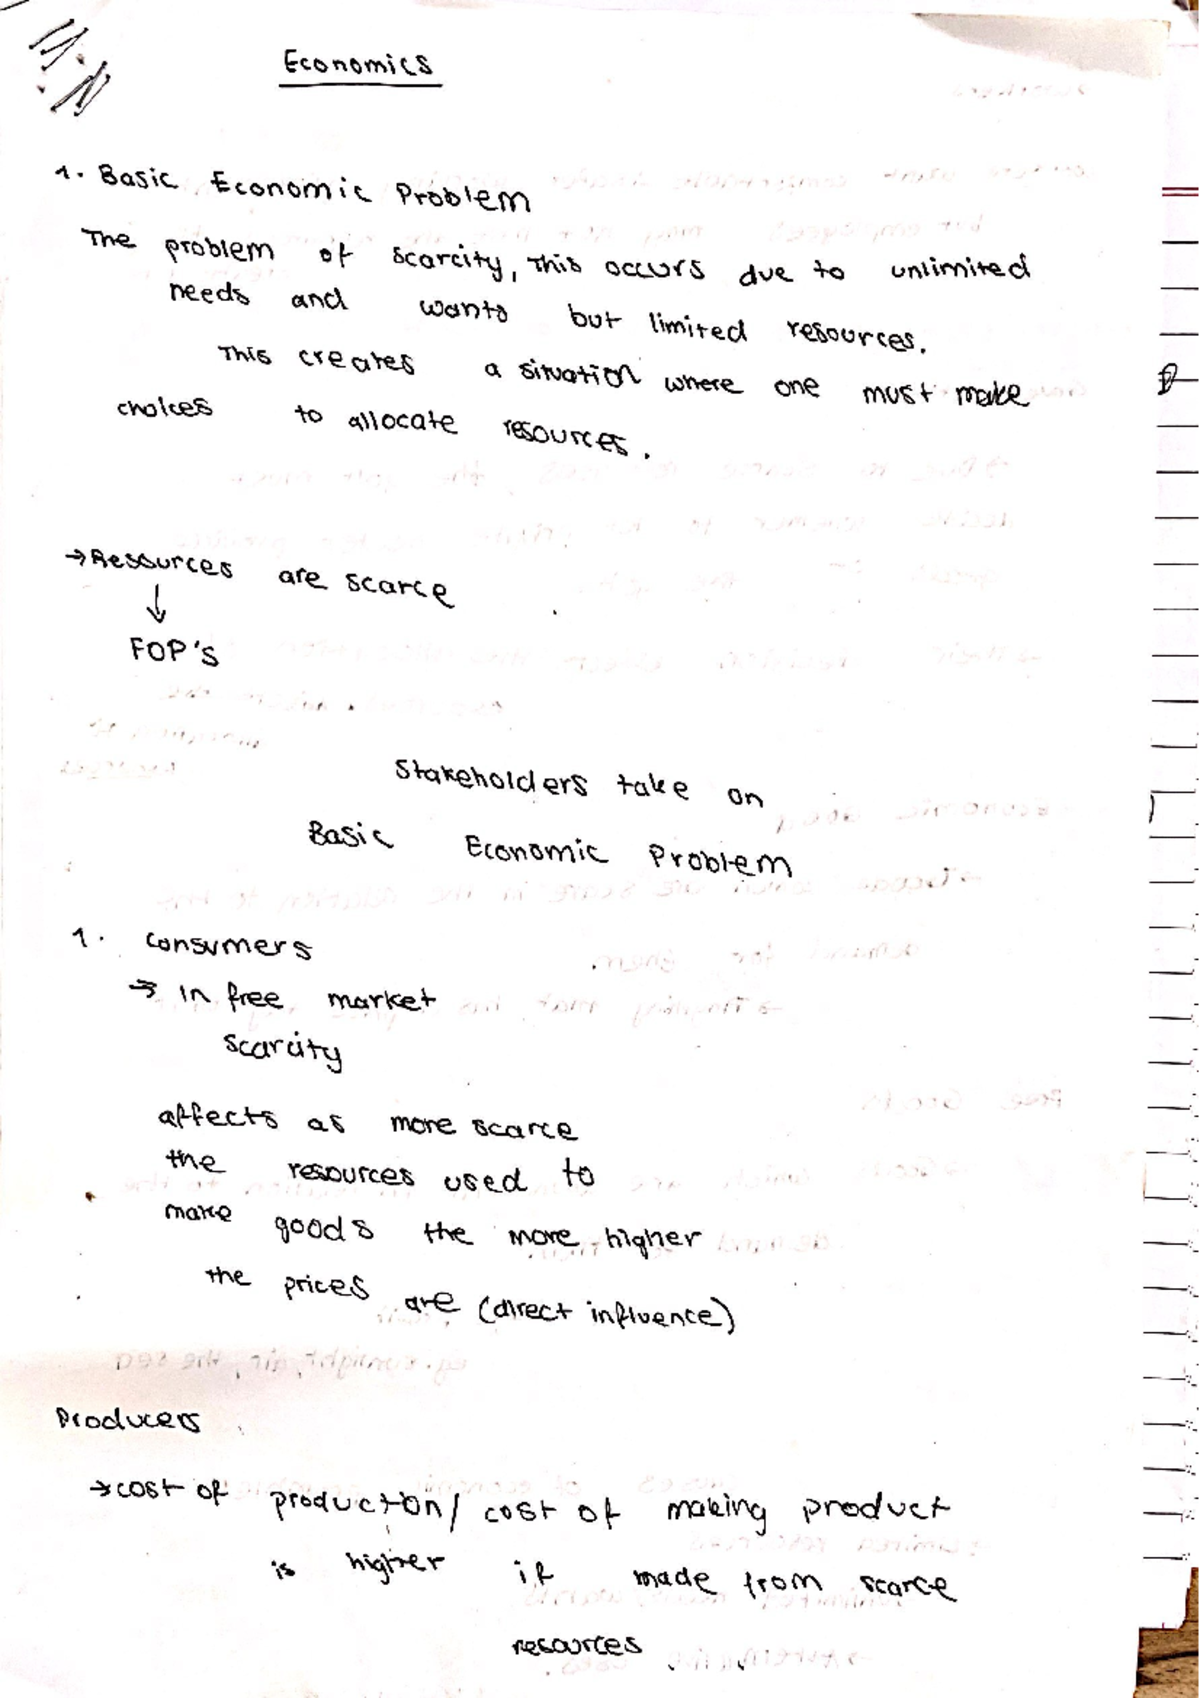 Economics
1. Basic Economic Problem
The problem of scarcity, This occurs due to unlimited
needs and wants but limited resources.
This creates a situation where one must make
choices to allocate resources.
→ Resources are scarce
↓
FOP's
Stakeholders take on
Basic Economic Problem
1. Consumers
→ In free market
scarcity
affects as more scarce
the resources used to
make goods the more higher
the prices are (direct influence)
Producers
→ cost of production/ cost of making product
is higher if made from scarce
resources